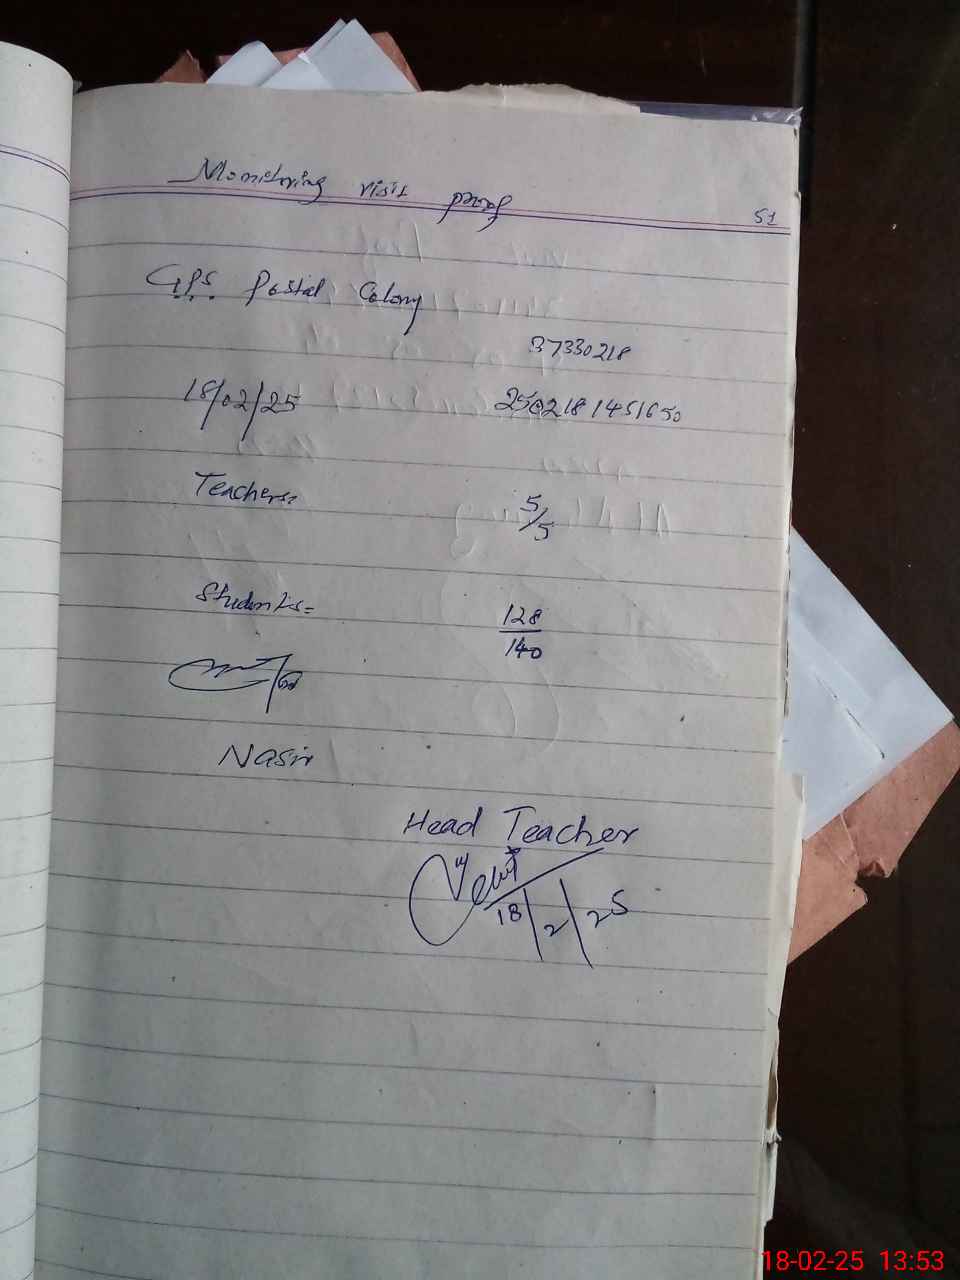 Monitoring visit proof
51
G.P.S. Postal Colony
37330218
18/02/25 2502181451650
Teachers: 5/5
Students= 128/140
Nasir
Head Teacher
18/2/25
18-02-25 13:53